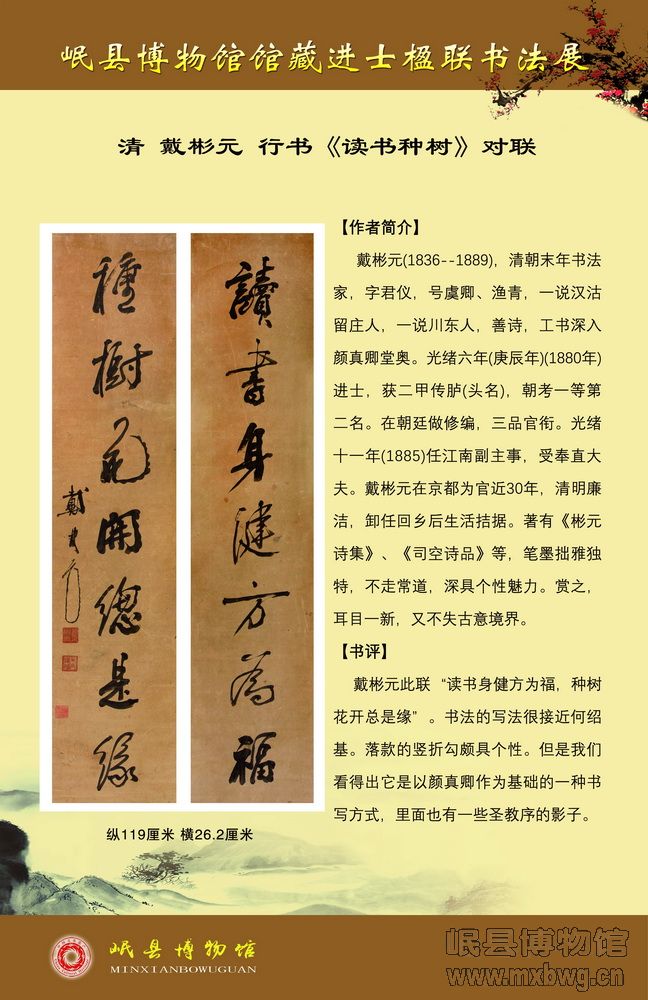 岷县博物馆馆藏进士楹联书法展
清 戴彬元 行书《读书种树》对联
讀書身健方為福
種樹花開總是緣
戴彬元
纵119厘米 横26.2厘米
【作者简介】
戴彬元(1836--1889)，清朝末年书法
家，字君仪，号虞卿、渔青，一说汉沽
留庄人，一说川东人，善诗，工书深入
颜真卿堂奥。光绪六年(庚辰年)(1880年)
进士，获二甲传胪(头名)，朝考一等第
二名。在朝廷做修编，三品官衔。光绪
十一年(1885)任江南副主事，受奉直大
夫。戴彬元在京都为官近30年，清明廉
洁，卸任回乡后生活拮据。著有《彬元
诗集》、《司空诗品》等，笔墨拙雅独
特，不走常道，深具个性魅力。赏之，
耳目一新，又不失古意境界。
【书评】
戴彬元此联“读书身健方为福，种树
花开总是缘”。书法的写法很接近何绍
基。落款的竖折勾颇具个性。但是我们
看得出它是以颜真卿作为基础的一种书
写方式，里面也有一些圣教序的影子。
岷县博物馆
MINXIANBOWUGUAN
岷县博物馆
www.mxbwg.cn